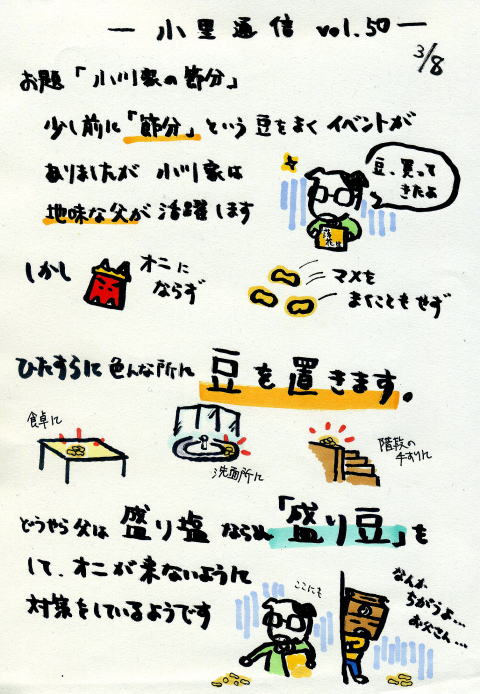 小里通信 vol.50
3/8
お題「小川家の節分」
少し前に「節分」という豆をまくイベントが
ありましたが 小川家は
地味な父が活躍します
豆、買って
きたよ
落花生
しかし
オニに
ならず
マメを
まくこともせず
ひたすらに色んな所に豆を置きます。
食卓に
洗面所に
階段の
手すりに
どうやら父は盛り塩ならぬ「盛り豆」を
して、オニが来ないように
対策をしているようです
ここにも
なんか
ちがうよ…
お父さん…